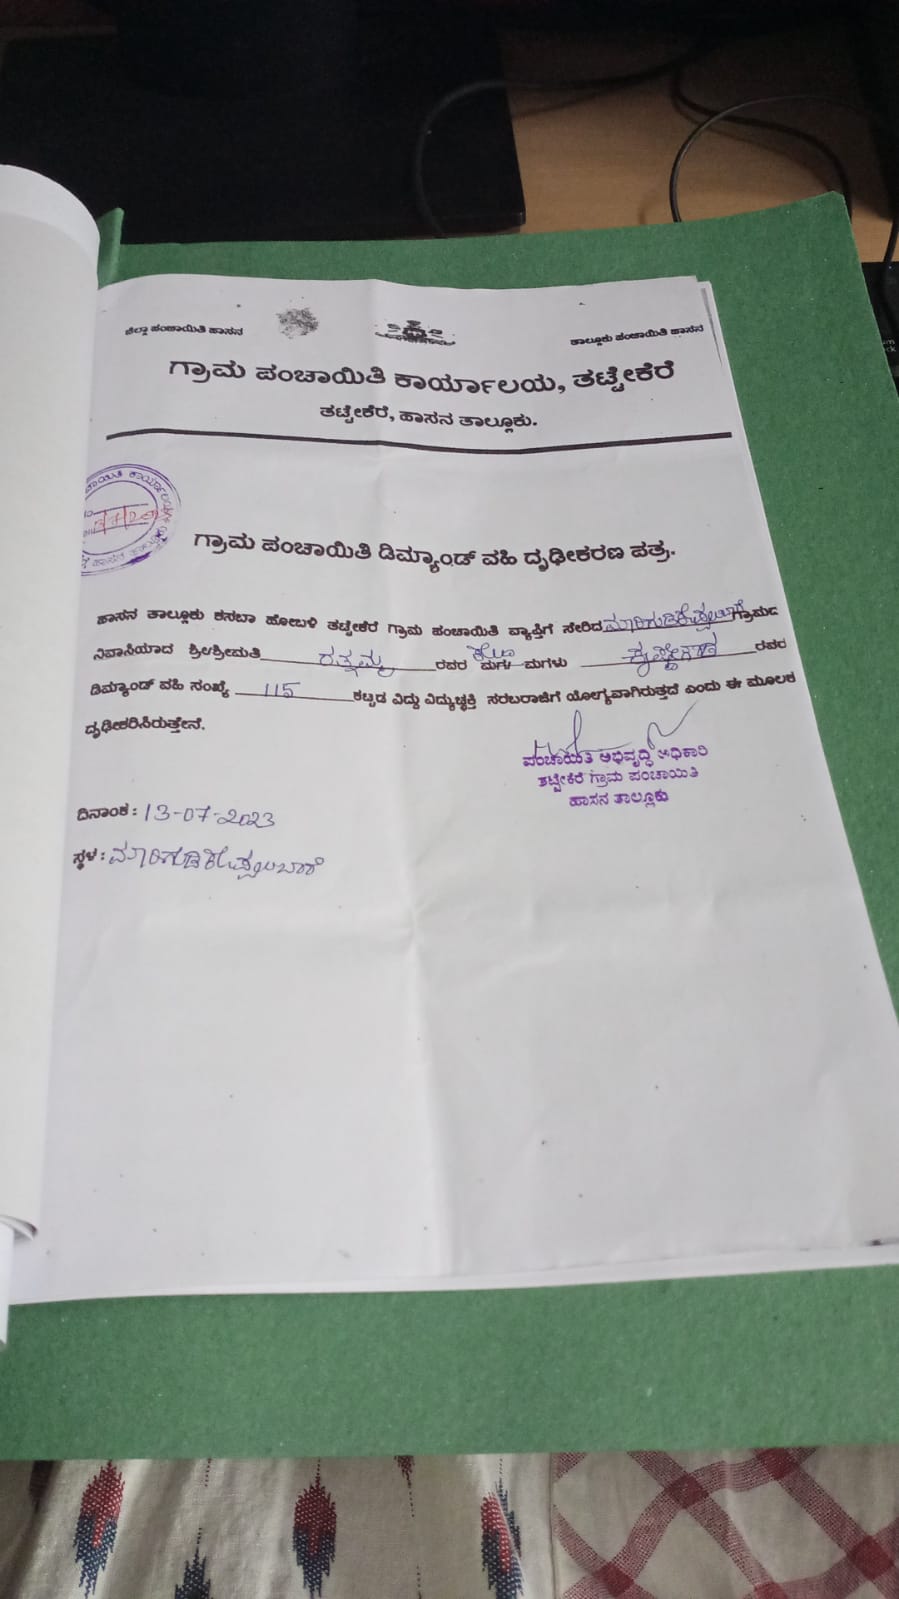 ಜಿಲ್ಲಾ ಪಂಚಾಯಿತಿ ಹಾಸನ
ತಾಲ್ಲೂಕು ಪಂಚಾಯಿತಿ ಹಾಸನ
ಗ್ರಾಮ ಪಂಚಾಯಿತಿ ಕಾರ್ಯಾಲಯ, ತಟ್ಟೇಕೆರೆ
ತಟ್ಟೇಕೆರೆ, ಹಾಸನ ತಾಲ್ಲೂಕು.
ಗ್ರಾಮ ಪಂಚಾಯಿತಿ ಡಿಮ್ಯಾಂಡ್ ವಹಿ ದೃಢೀಕರಣ ಪತ್ರ.
ಹಾಸನ ತಾಲ್ಲೂಕು ಕಸಬಾ ಹೋಬಳಿ ತಟ್ಟೇಕೆರೆ ಗ್ರಾಮ ಪಂಚಾಯಿತಿ ವ್ಯಾಪ್ತಿಗೆ ಸೇರಿದ ಗ್ರಾಮದ
ನಿವಾಸಿಯಾದ ಶ್ರೀ/ಶ್ರೀಮತಿ ರತ್ನಮ್ಮ ರವರ ಕೋಂ ಮಗ/ ಮಗಳು ಕೃಷ್ಣೇಗೌಡ ರವರ
ಡಿಮ್ಯಾಂಡ್ ವಹಿ ಸಂಖ್ಯೆ 115 ಕಟ್ಟಡ ವಿದ್ದು ವಿದ್ಯುಚ್ಛಕ್ತಿ ಸರಬರಾಜಿಗೆ ಯೋಗ್ಯವಾಗಿರುತ್ತದೆ ಎಂದು ಈ ಮೂಲಕ
ದೃಢೀಕರಿಸಿರುತ್ತೇನೆ.
ಪಂಚಾಯಿತಿ ಅಭಿವೃದ್ಧಿ ಅಧಿಕಾರಿ
ತಟ್ಟೇಕೆರೆ ಗ್ರಾಮ ಪಂಚಾಯಿತಿ
ಹಾಸನ ತಾಲ್ಲೂಕು
ದಿನಾಂಕ : 13-07-2023
ಸ್ಥಳ :